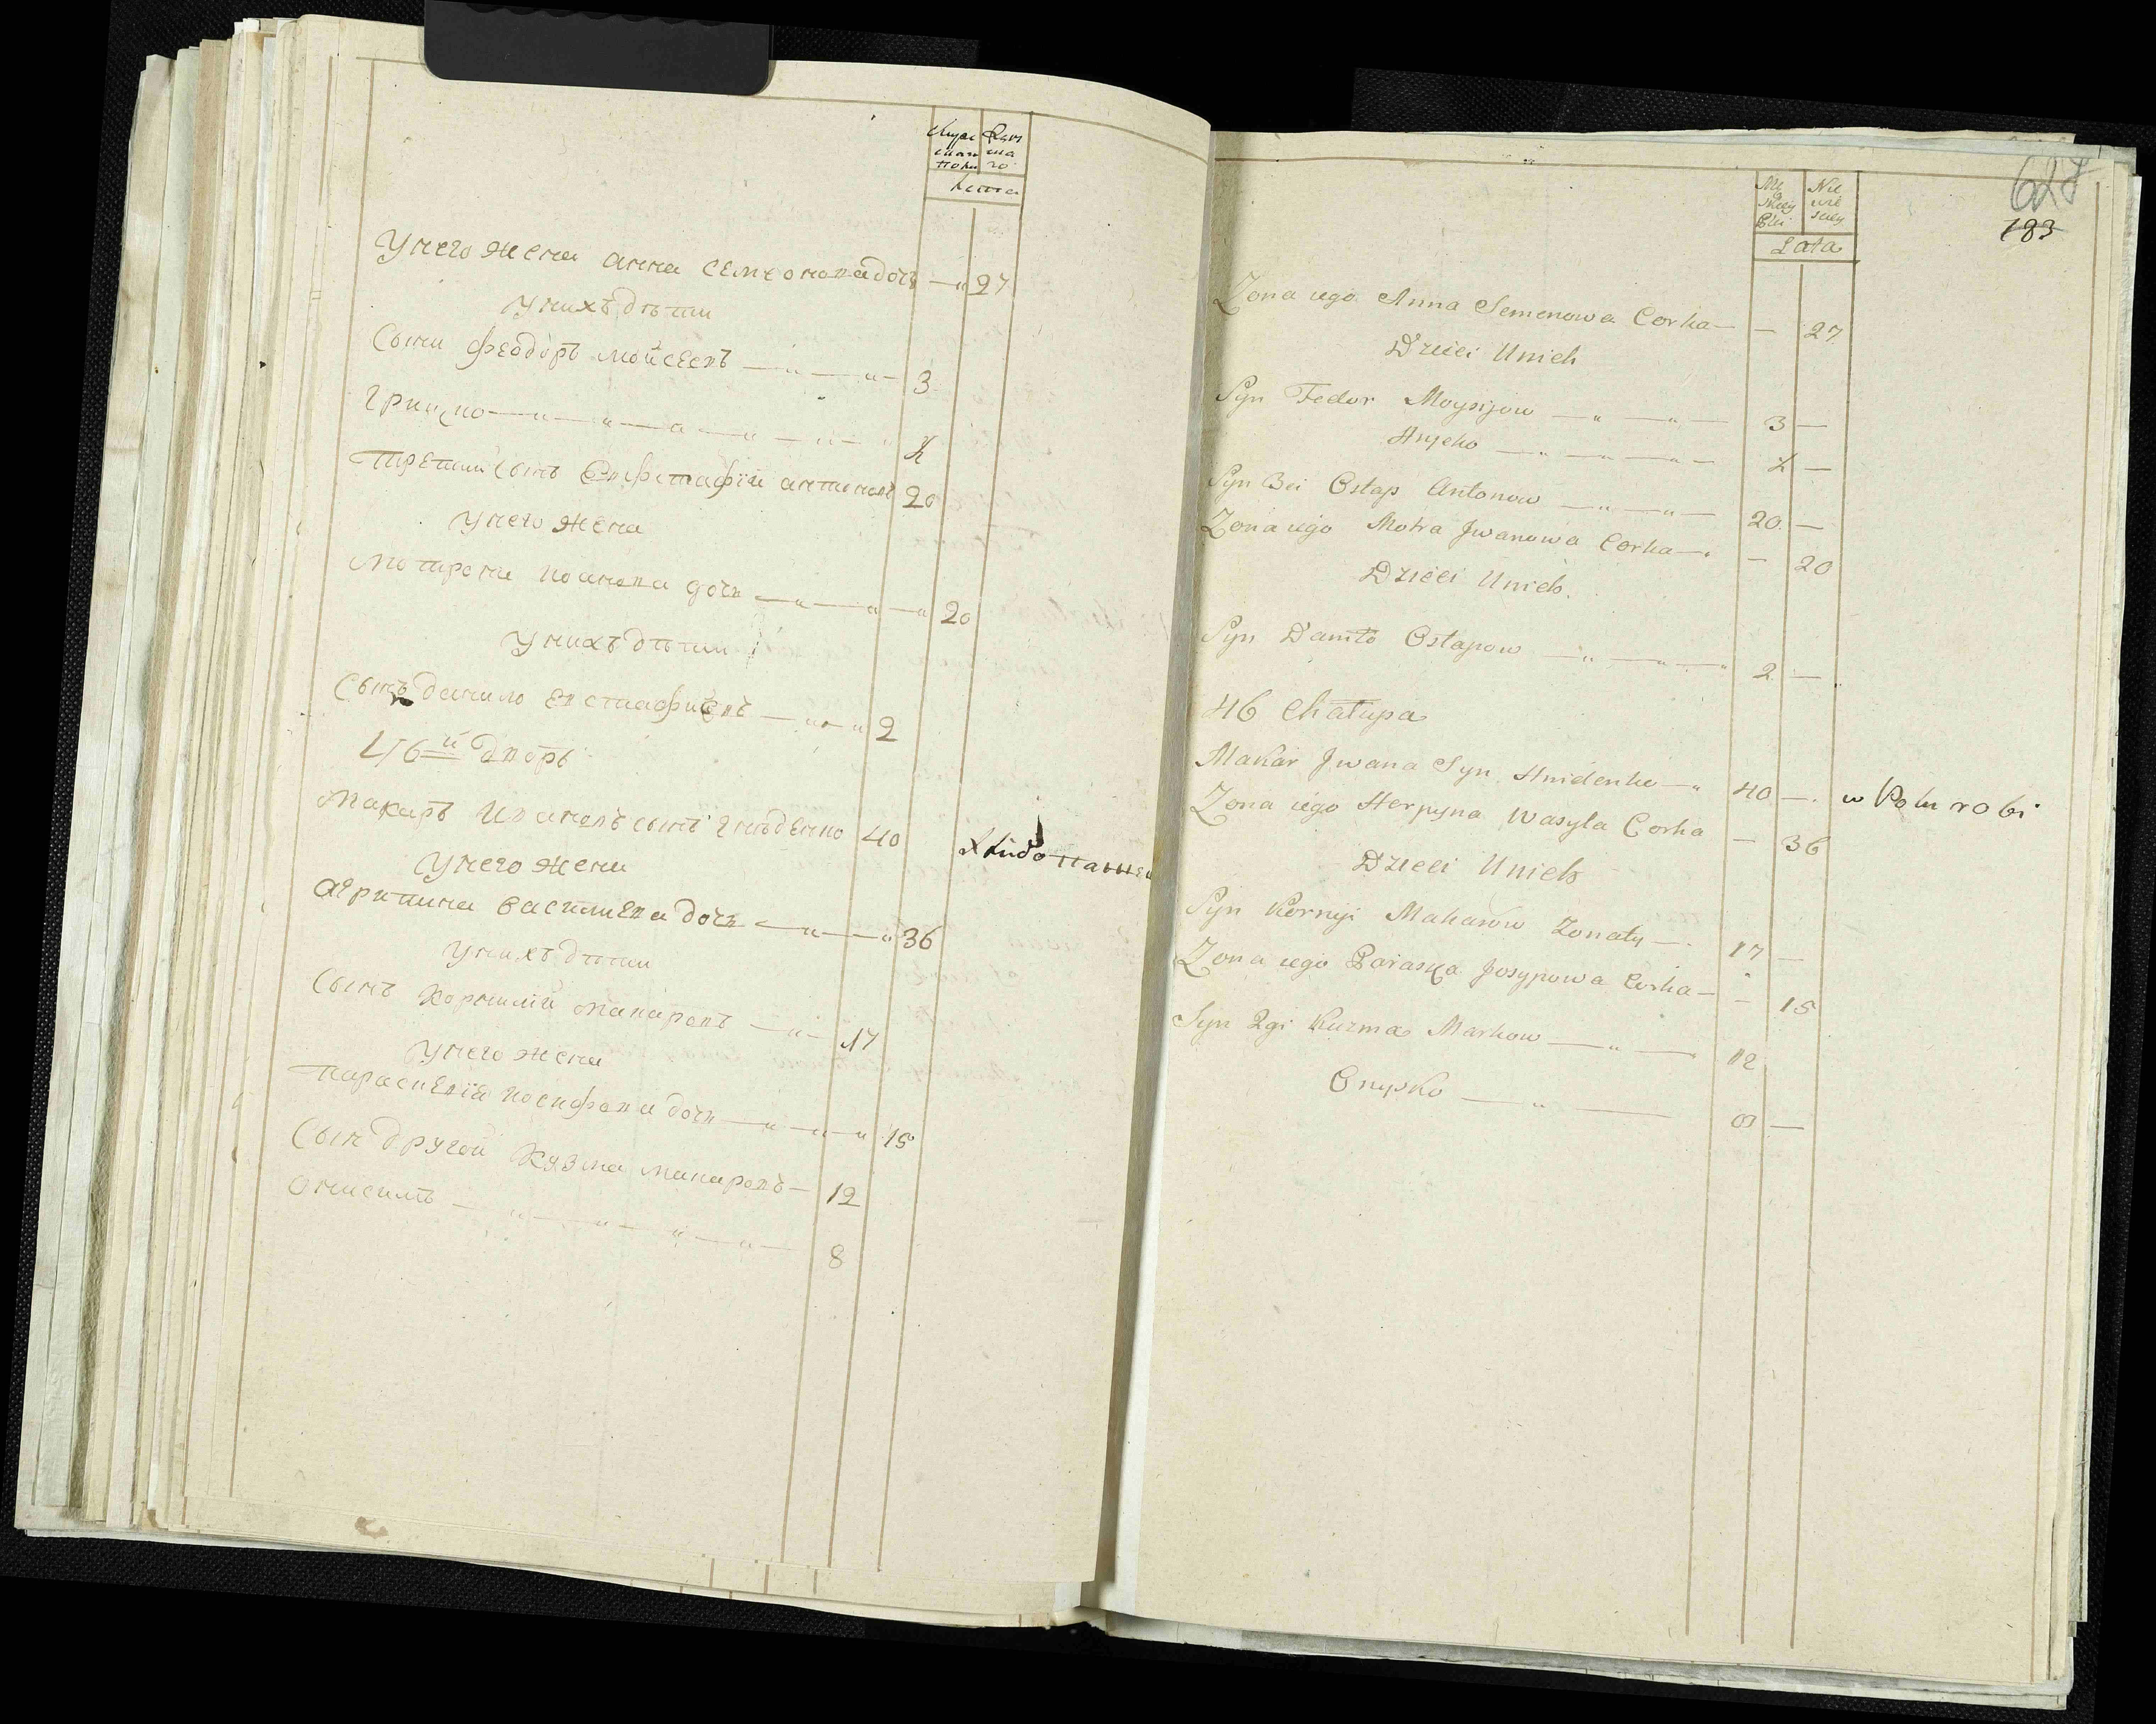 Лета
У него жена анна семионова дочь — 27
У нихъ дѣти
Сыни феодоръ мойсеевъ — 3
грицко —
третий Сынъ Евфстафiй антоновъ 20
У него жена
мотрона иоанова дочь — 20
У нихъ дѣти
Сынъ данило евстафиевъ — 2
46й дворъ
Макаръ Ивановъ сынъ гнѣденко 40
У него жена
агрипина василиева дочь — 36
У нихъ дѣти
Сынъ Корнилий макаровъ — 17
У него жена
параскевiя иосифова дочь — 15
Сын другой Кузма макаровъ — 12
онисимъ — 8
628
183
Lata
Zona iego Anna Semenowa Corka — — 27
Dzieci Unich
Syn Fedor Moysijow — 3 —
Hryćko —
Syn 3ci Ostap Antonow — 20 —
Zona iego Motra Jwanowa Corka — — 20
Dzieci Unich.
Syn Daniło Ostapow — 2 —
46 Chałupa
Makar Jwana Syn Hnidenko — 40 — w Polu robi
Zona iego Herpyna Wasyla Corka — 36
Dzieci Unich
Syn Kornyi Makarow Zonaty — 17 —
Zona iego Paraska Josypowa Corka — — 15
Syn 2gi Kuzma Markow — 12
Onysko — 8 —